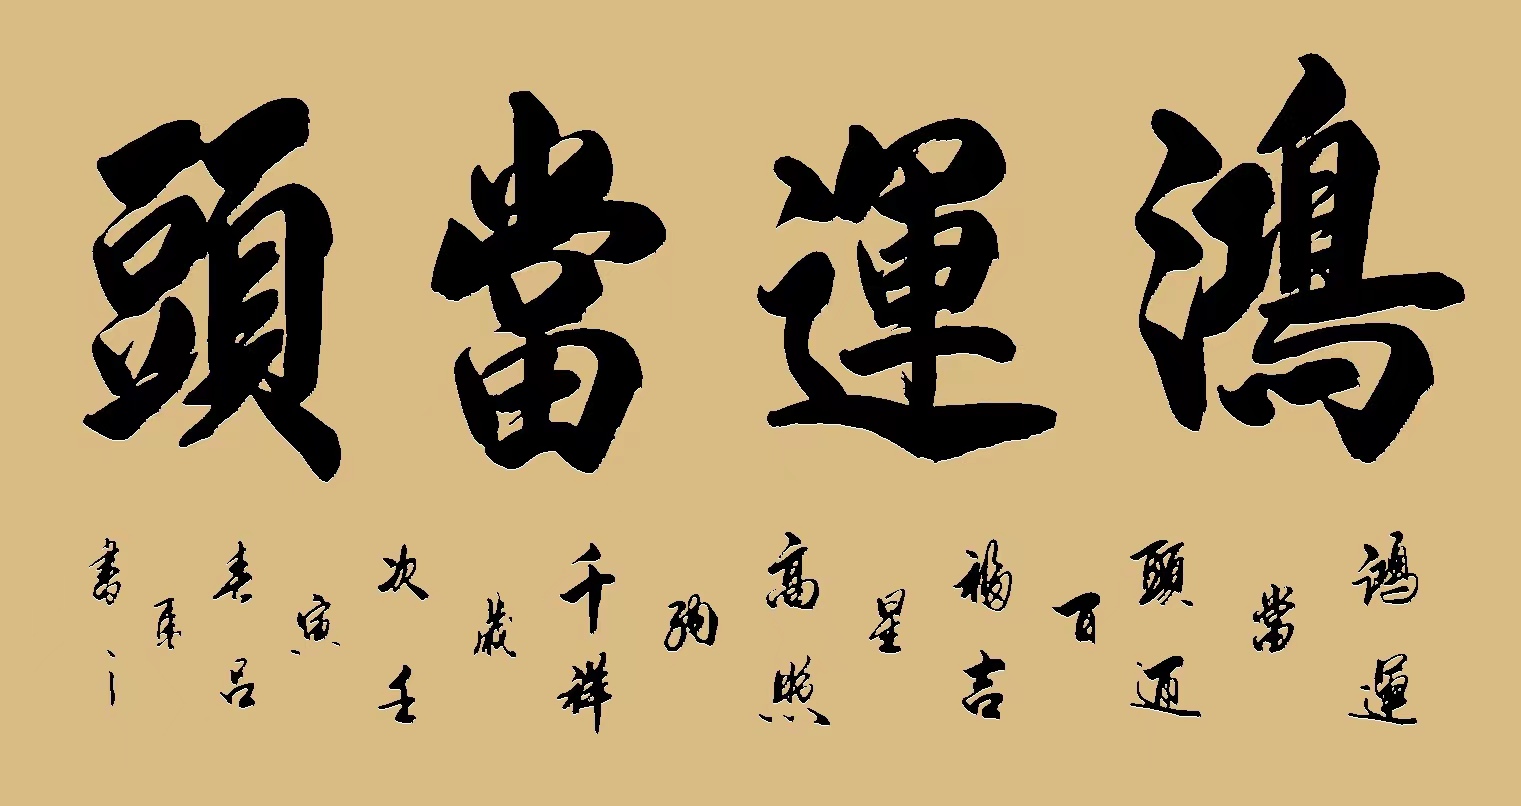 鴻運當頭
鴻運
當
頭迎
百
福吉
星
高照
納
千祥
歲
次壬
寅
春吕
書